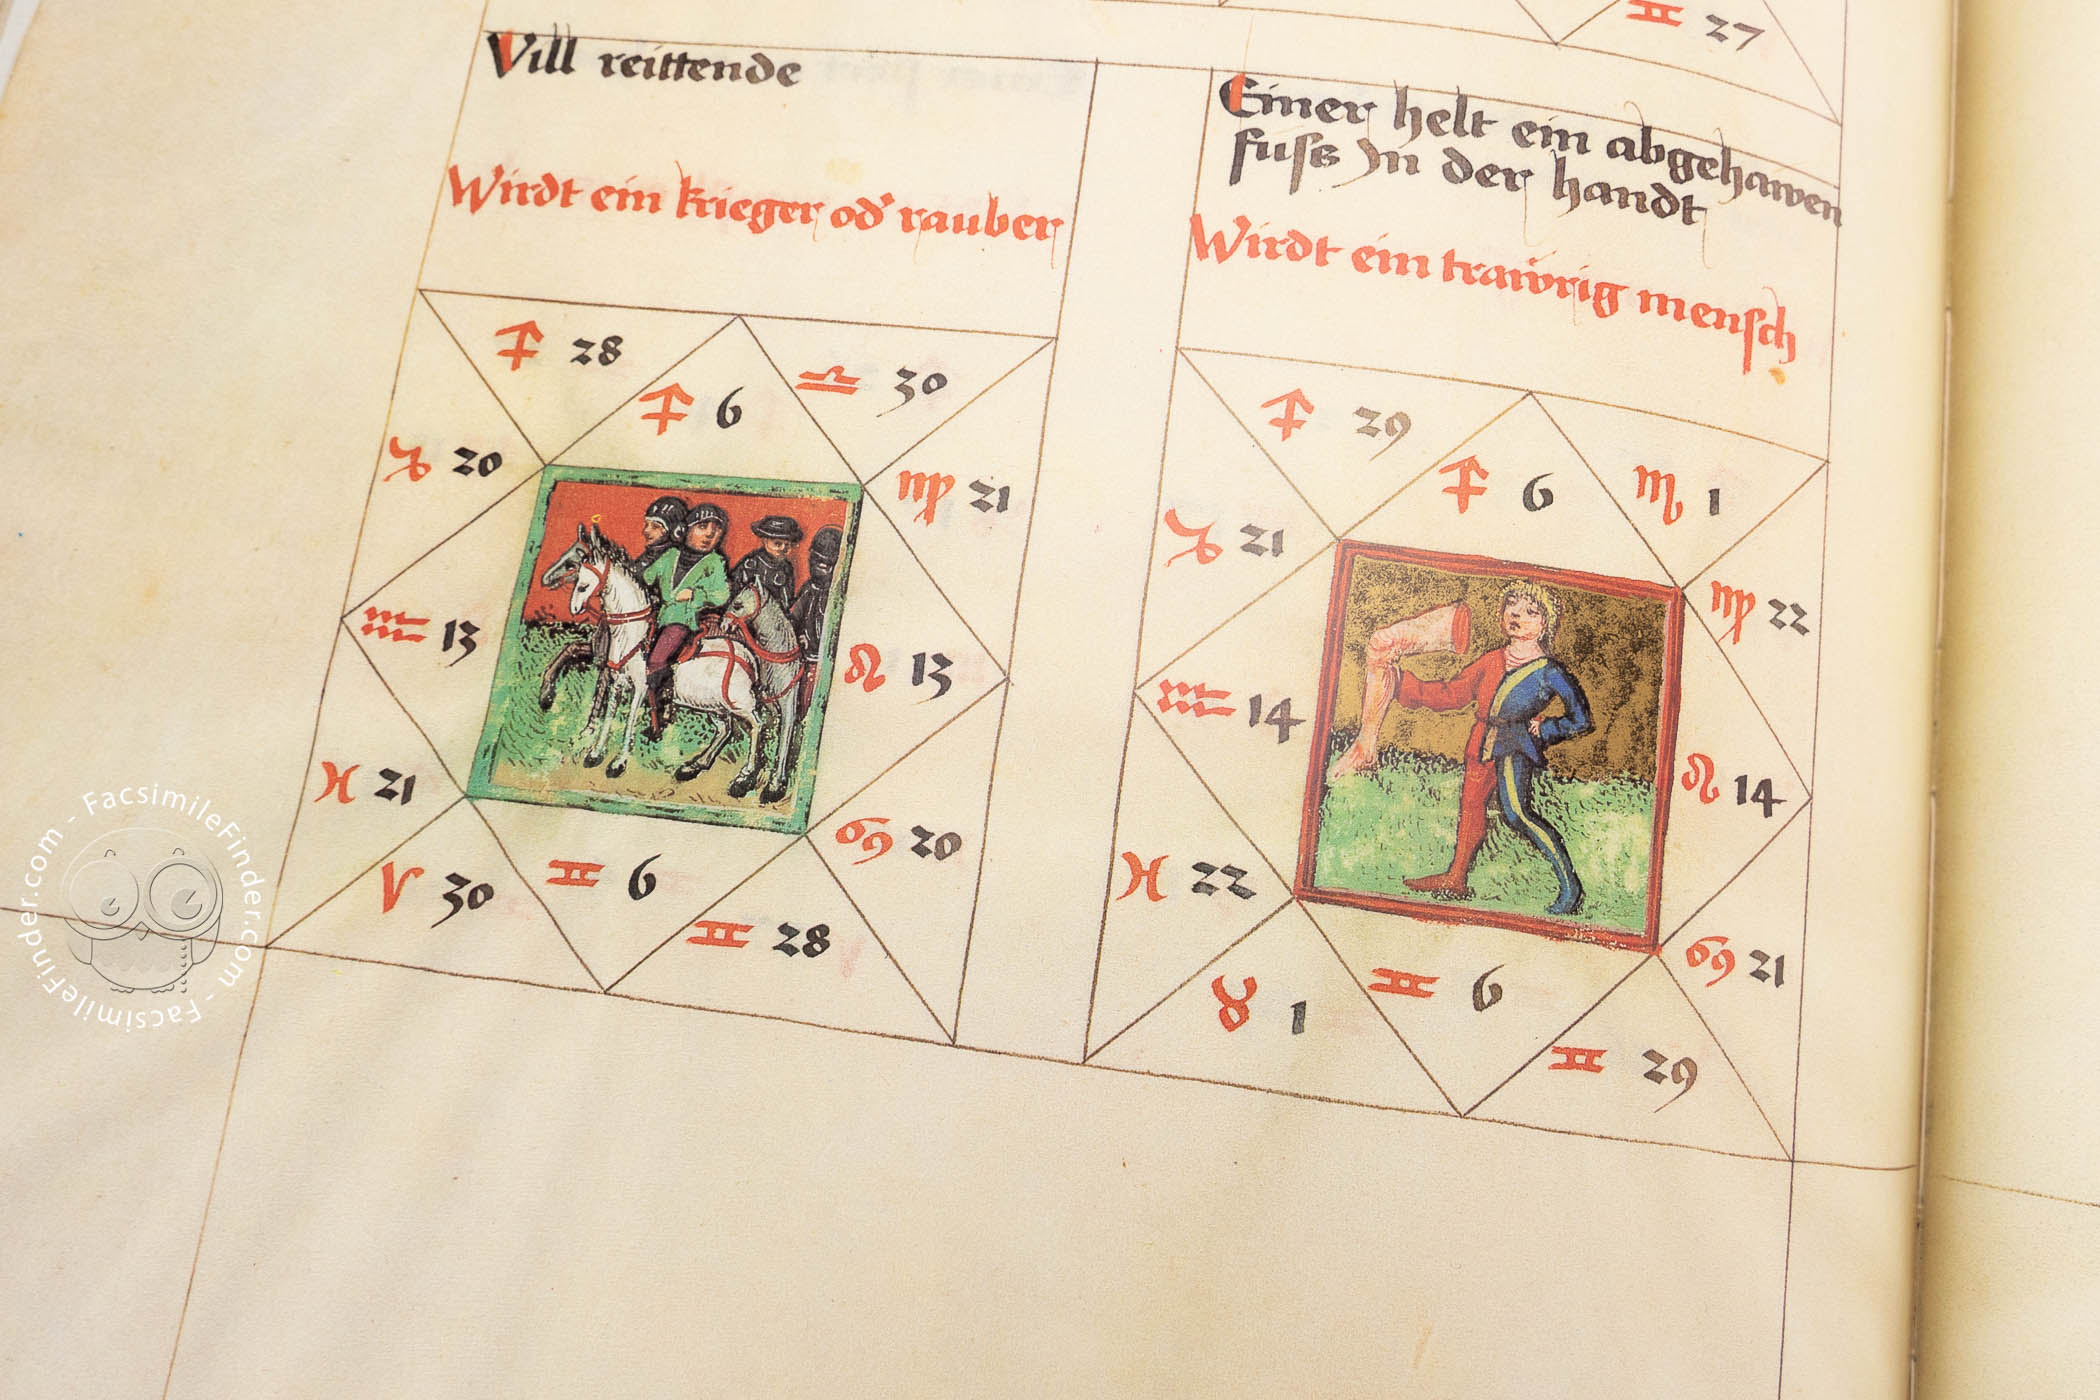 ♊ 27
Vill reittende
Wirdt ein krieger od' rauber
♐ 28
♐ 6
♎ 30
♑ 20
♍ 21
♒ 13
♌ 13
♓ 21
♋ 20
♈ 30
♊ 6
♊ 28
Einer helt ein abgehawen
fusß Jn der handt
Wirdt ein trawrig mensch
♐ 29
♐ 6
♏ 1
♑ 21
♍ 22
♒ 14
♌ 14
♓ 22
♋ 21
♉ 1
♊ 6
♊ 29
FacsimileFinder.com - FacsimileFinder.com -